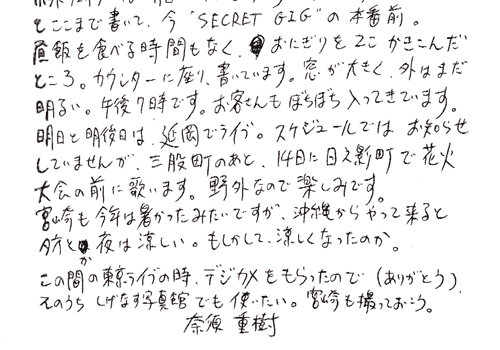 とここまで書いて、今 “SECRET GIG”の本番前。
昼飯を食べる時間もなく、おにぎりを2こ かきこんだ
ところ。カウンターに座り、書いています。窓が大きく、外はまだ
明るい。午後7時です。お客さんも ぼちぼち 入ってきています。
明日と明後日は、延岡でライブ。スケジュールでは お知らせ
していませんが、三股町のあと、14日に日之影町で花火
大会の前に歌います。野外なので楽しみです。
宮崎も今年は暑かったみたいですが、沖縄からやって来ると
夕方とか夜は涼しい。もしかして、涼しくなったのか。
この間の東京ライブの時、デジカメをもらったので(ありがとう)、
そのうち しげなす写真館でも使いたい。宮崎も撮っておこう。
奈須 重樹